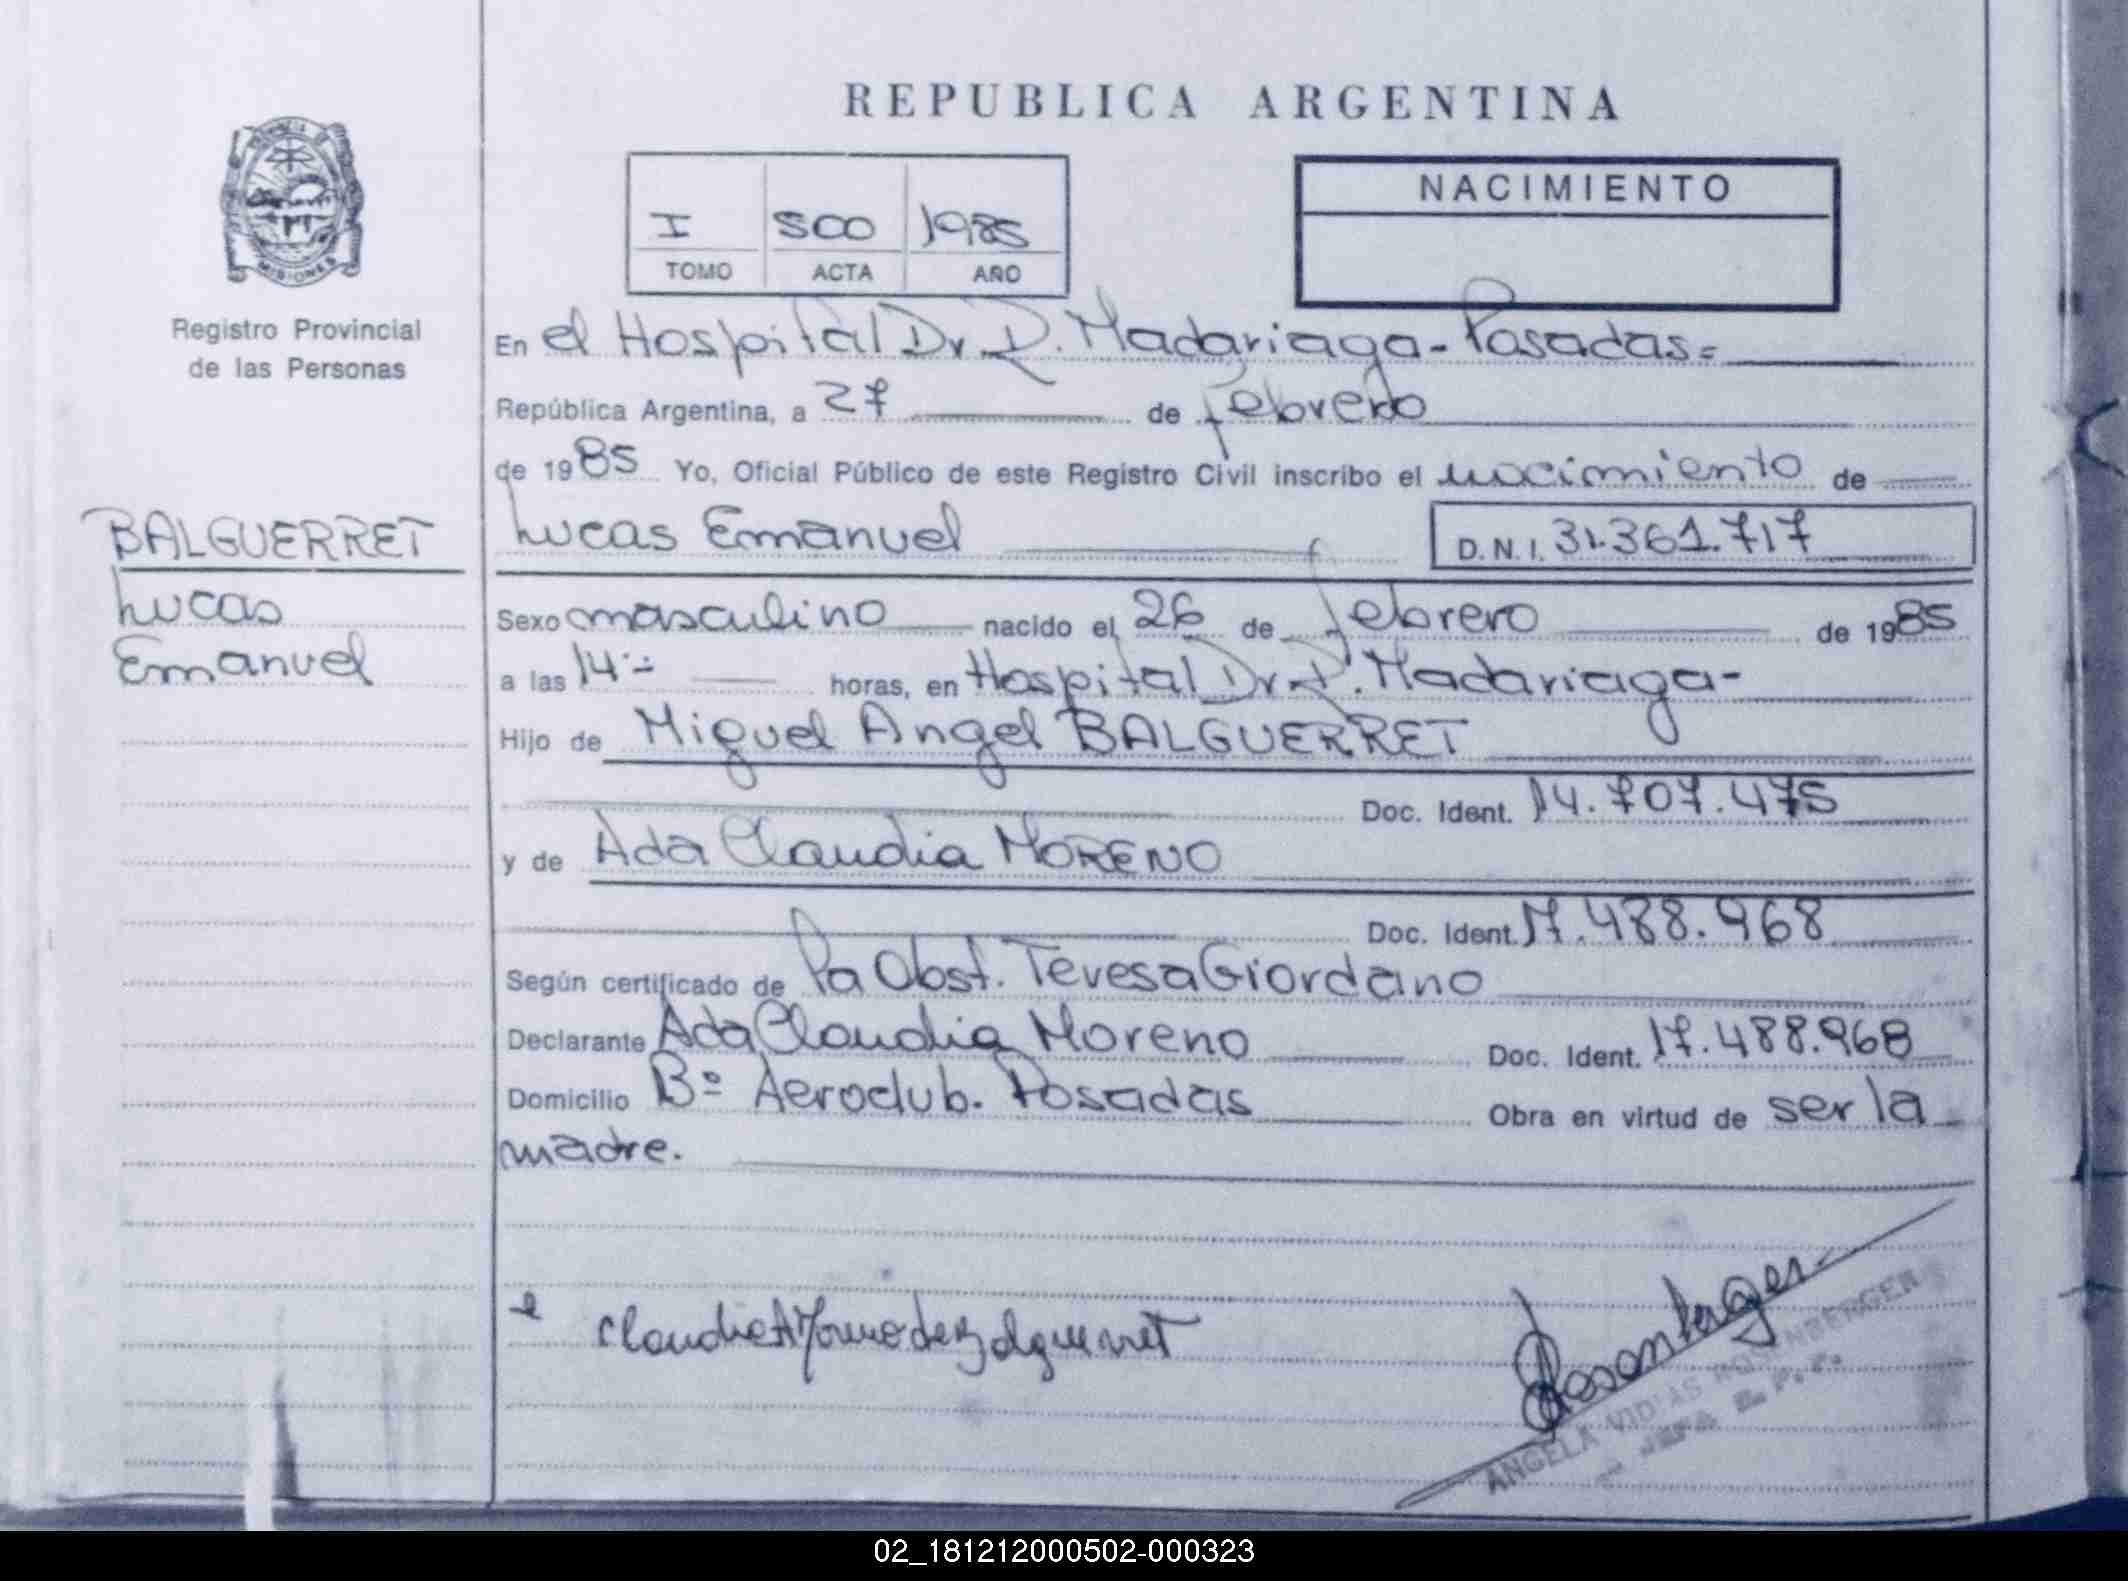 REPUBLICA ARGENTINA
PROVINCIA DE
MISIONES
Registro Provincial
de las Personas
I 500 1985
TOMO ACTA AÑO
NACIMIENTO
En el Hospital Dr. R. Madariaga - Posadas=
República Argentina, a 27 de febrero
de 1985 Yo, Oficial Público de este Registro Civil inscribo el nacimiento de
BALGUERRET
Lucas
Emanuel
Lucas Emanuel D.N.I. 31.361.717
Sexo masculino nacido el 26 de febrero de 1985
a las 14-- horas, en Hospital Dr. R. Madariaga-
Hijo de Miguel Angel BALGUERRET
Doc. Ident. 14.707.475
y de Ada Claudia MORENO
Doc. Ident. 17.488.968
Según certificado de la Obst. Teresa Giordano
Declarante Ada Claudia Moreno Doc. Ident. 17.488.968
Domicilio Bº Aeroclub. Posadas Obra en virtud de ser la
madre.
Claudia A Moreno de Balguerret
Rosenberger
ANGELA ROSENBERGER
JEFA
02_181212000502-000323